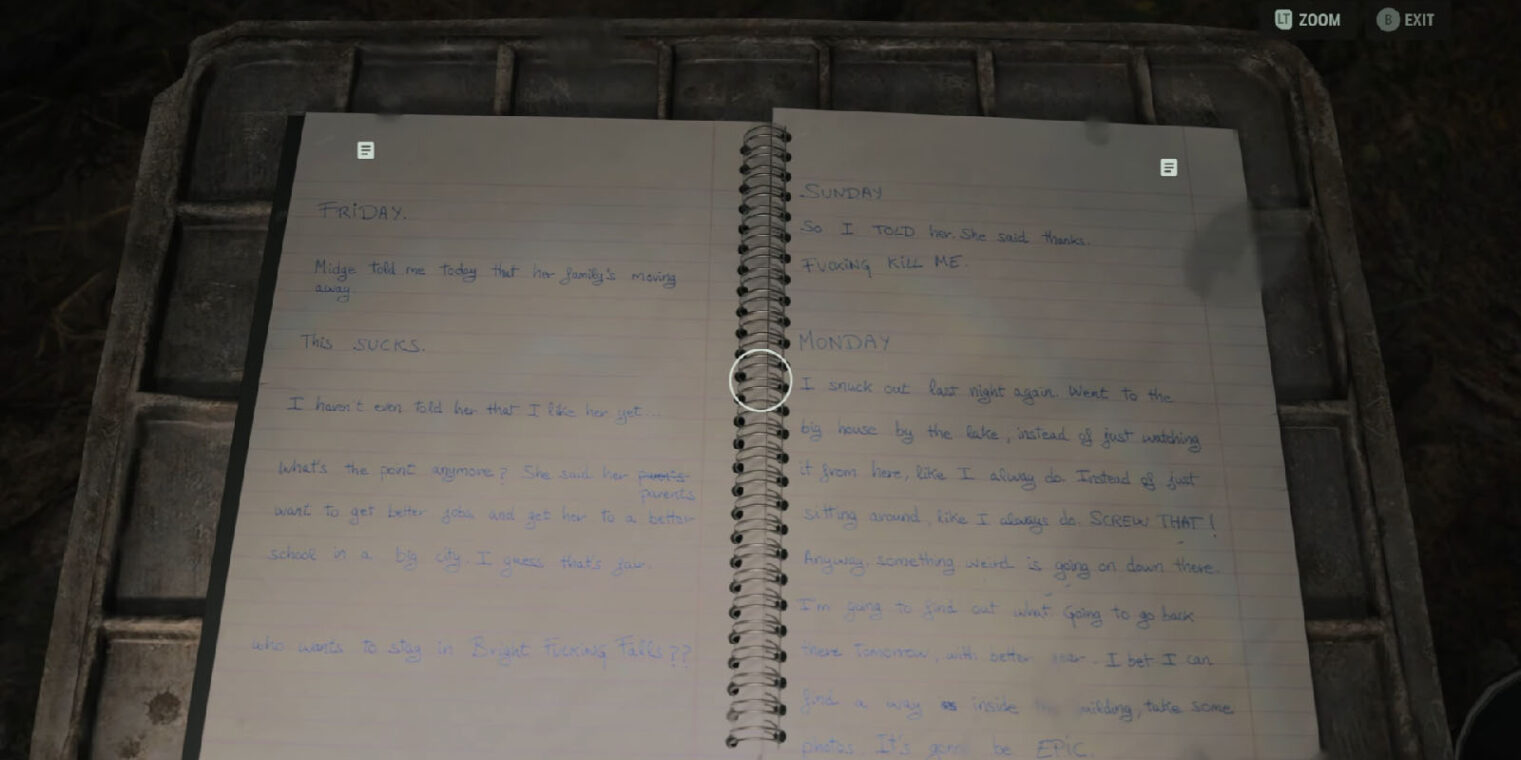 LT ZOOM B EXIT
FRIDAY.
Midge told me today that her family's moving
away
This SUCKS.
I haven't even told her that I like her yet...
What's the point anymore? She said her
parents
want to get better jobs and get her to a better
school in a big city. I guess that's fair.
who wants to stay in Bright FUCKING Falls??
SUNDAY
So I TOLD her. She said thanks.
FUCKING KILL ME.
MONDAY
I snuck out last night again. Went to the
big house by the lake, instead of just watching
it from here, like I alway do. Instead of just
sitting around, like I always do. SCREW THAT!
Anyway, something weird is going on down there.
I'm going to find out what. Going to go back
there tomorrow, with better I bet I can
find a way inside take some
photos. It's be EPIC.